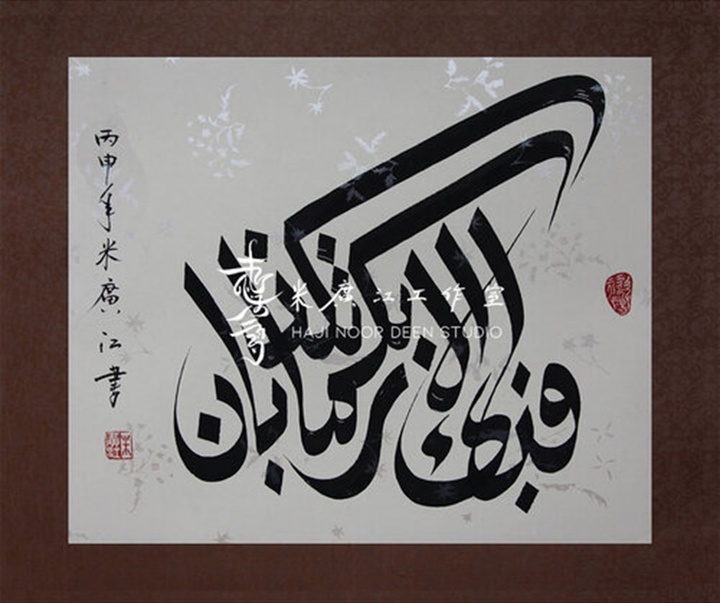 فبأي آلاء ربكما تكذبان
丙申年米廣江書
米廣江工作室
HAJI NOOR DEEN STUDIO